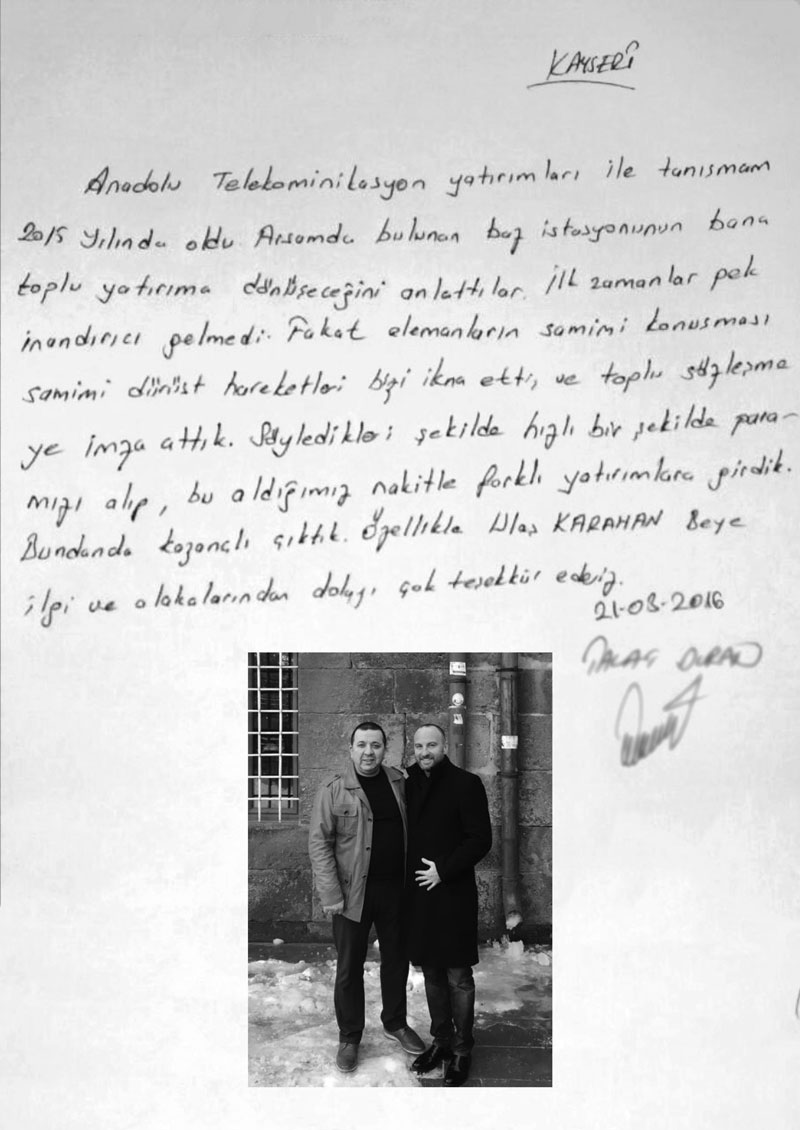 KAYSERİ
Anadolu Telekominikasyon yatırımları ile tanışmam
2015 Yılında oldu. Arsamda bulunan baz istasyonunun bana
toplu yatırıma dönüşeceğini anlattılar. İlk zamanlar pek
inandırıcı gelmedi. Fakat elemanların samimi konuşması
samimi dürüst hareketleri bizi ikna etti, ve toplu sözleşme
ye imza attık. Söyledikleri şekilde hızlı bir şekilde para-
mızı alıp, bu aldığımız nakitle farklı yatırımlara girdik.
Bundanda kazançlı çıktık. Özellikle Ulaş KARAHAN Beye
ilgi ve alakalarından dolayı çok teşekkür ederiz.
21-03-2016
DURAN